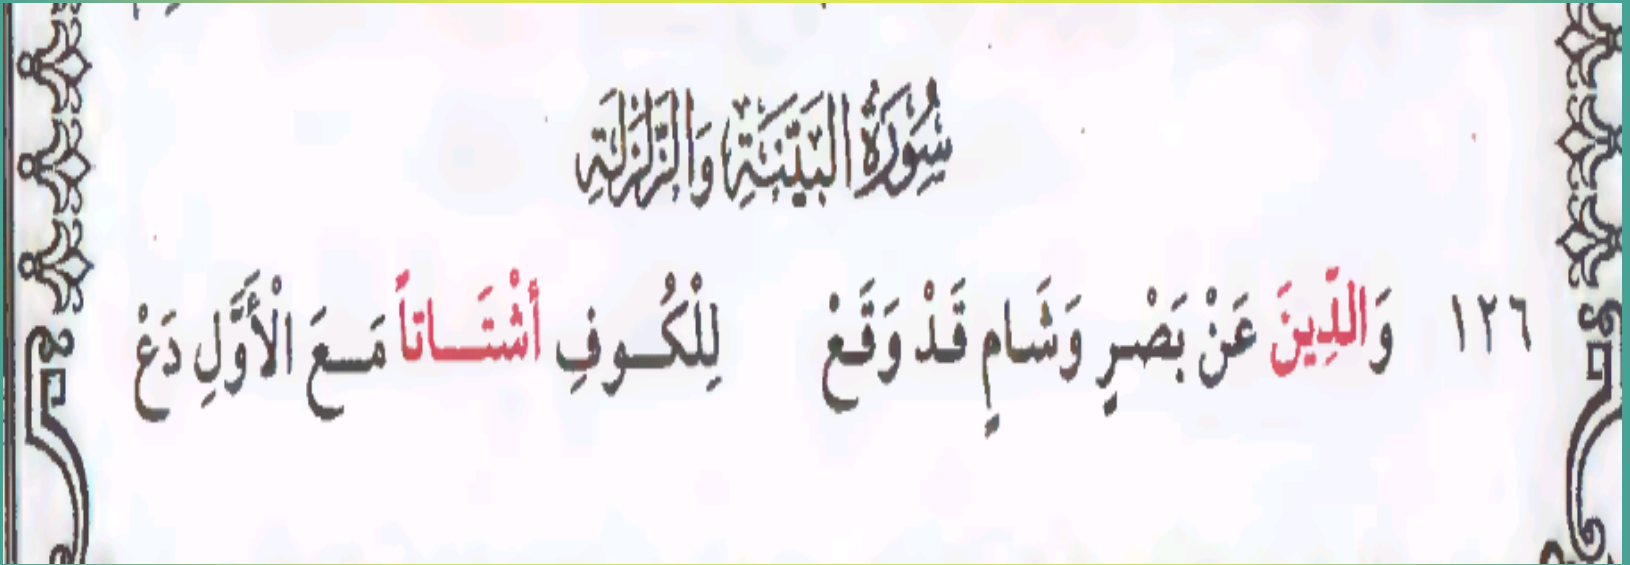 سُورَةُ البَيِّنَةِ وَالزَّلْزَلَةِ
١٢٦ وَالدِّينَ عَنْ بَصْرٍ وَشَامٍ قَدْ وَقَعْ لِلْكُوفِ أَشْتَاتاً مَعَ الْأَوَّلِ دَعْ